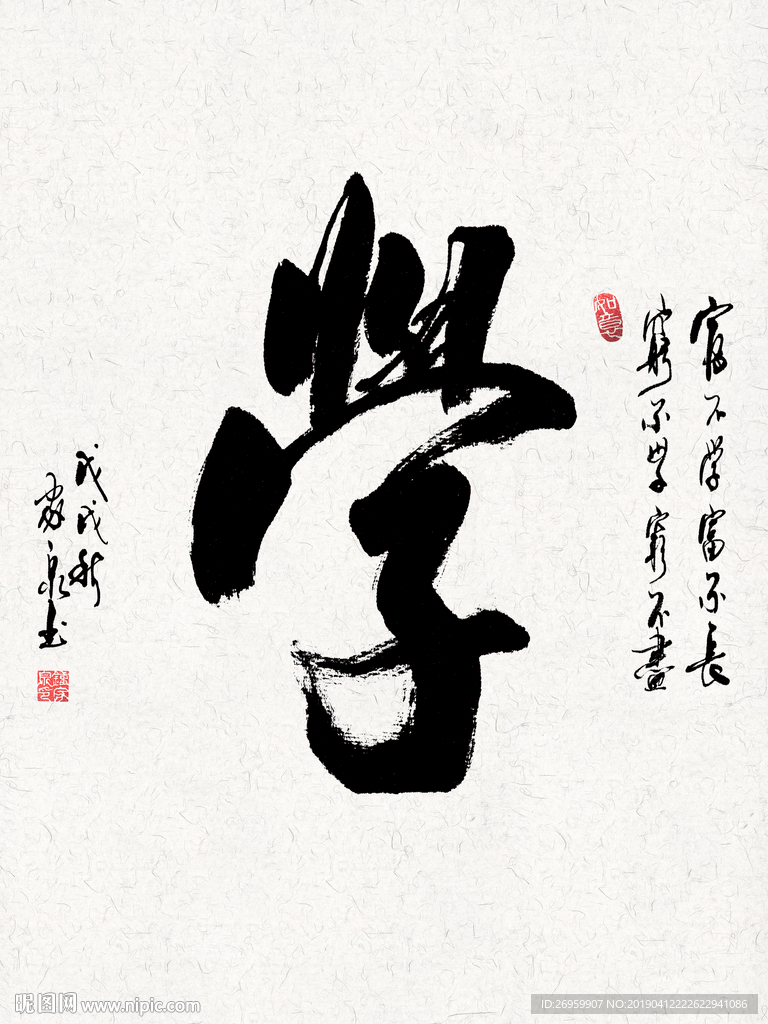 富不学富不長
窮不學窮不盡
如意
學
戊戌秋
泉书
昵图网 www.nipic.com
ID:26959907 NO:20190412222622941086